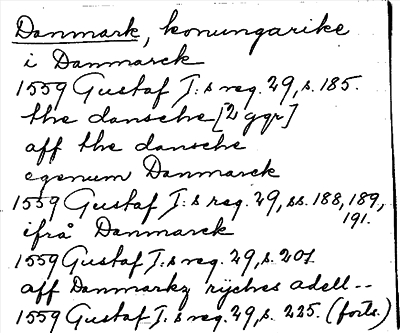 Danmark, konungarike
i Danmarck
1559 Gustaf I:s reg. 29, s. 185.
the dansche [2 ggr]
aff the dansche
egenum Danmarck
1559 Gustaf I:s reg. 29, ss. 188, 189,
191.
ifrå Danmarck
1559 Gustaf I:s reg. 29, s. 201.
aff Danmarkz rijches adell--
1559 Gustaf I:s reg. 29, s. 225. (forts.)